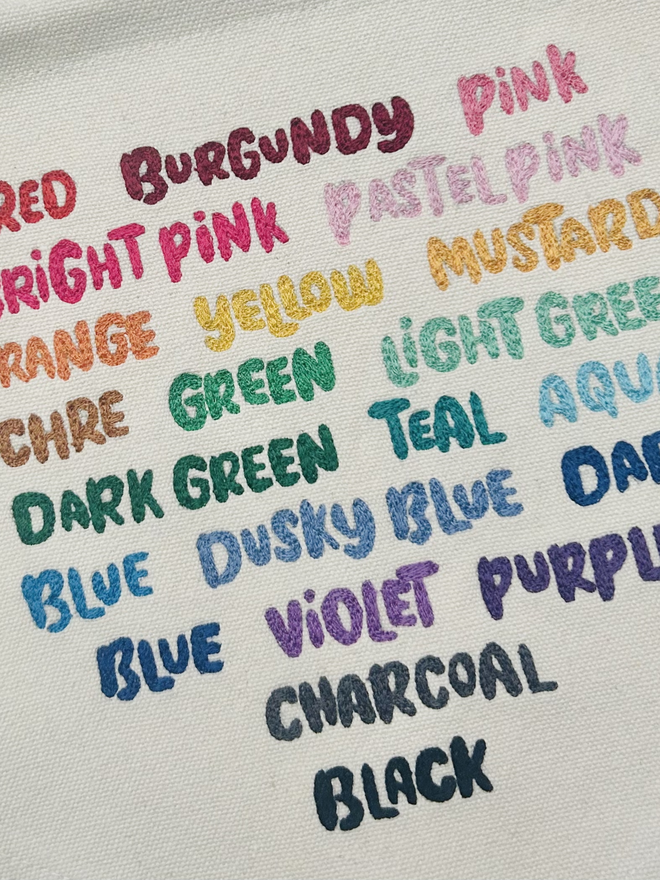 RED BURGUNDY PiNK
BRiGHT PiNK PASTEL PiNK
RANGE YELLOW MUSTARD
CHRE GREEN LiGHT GREE
DARK GREEN TEAL AQU
BLUE DUSKY BLUE DAR
BLUE ViOLET PURPL
CHARCOAL
BLACK